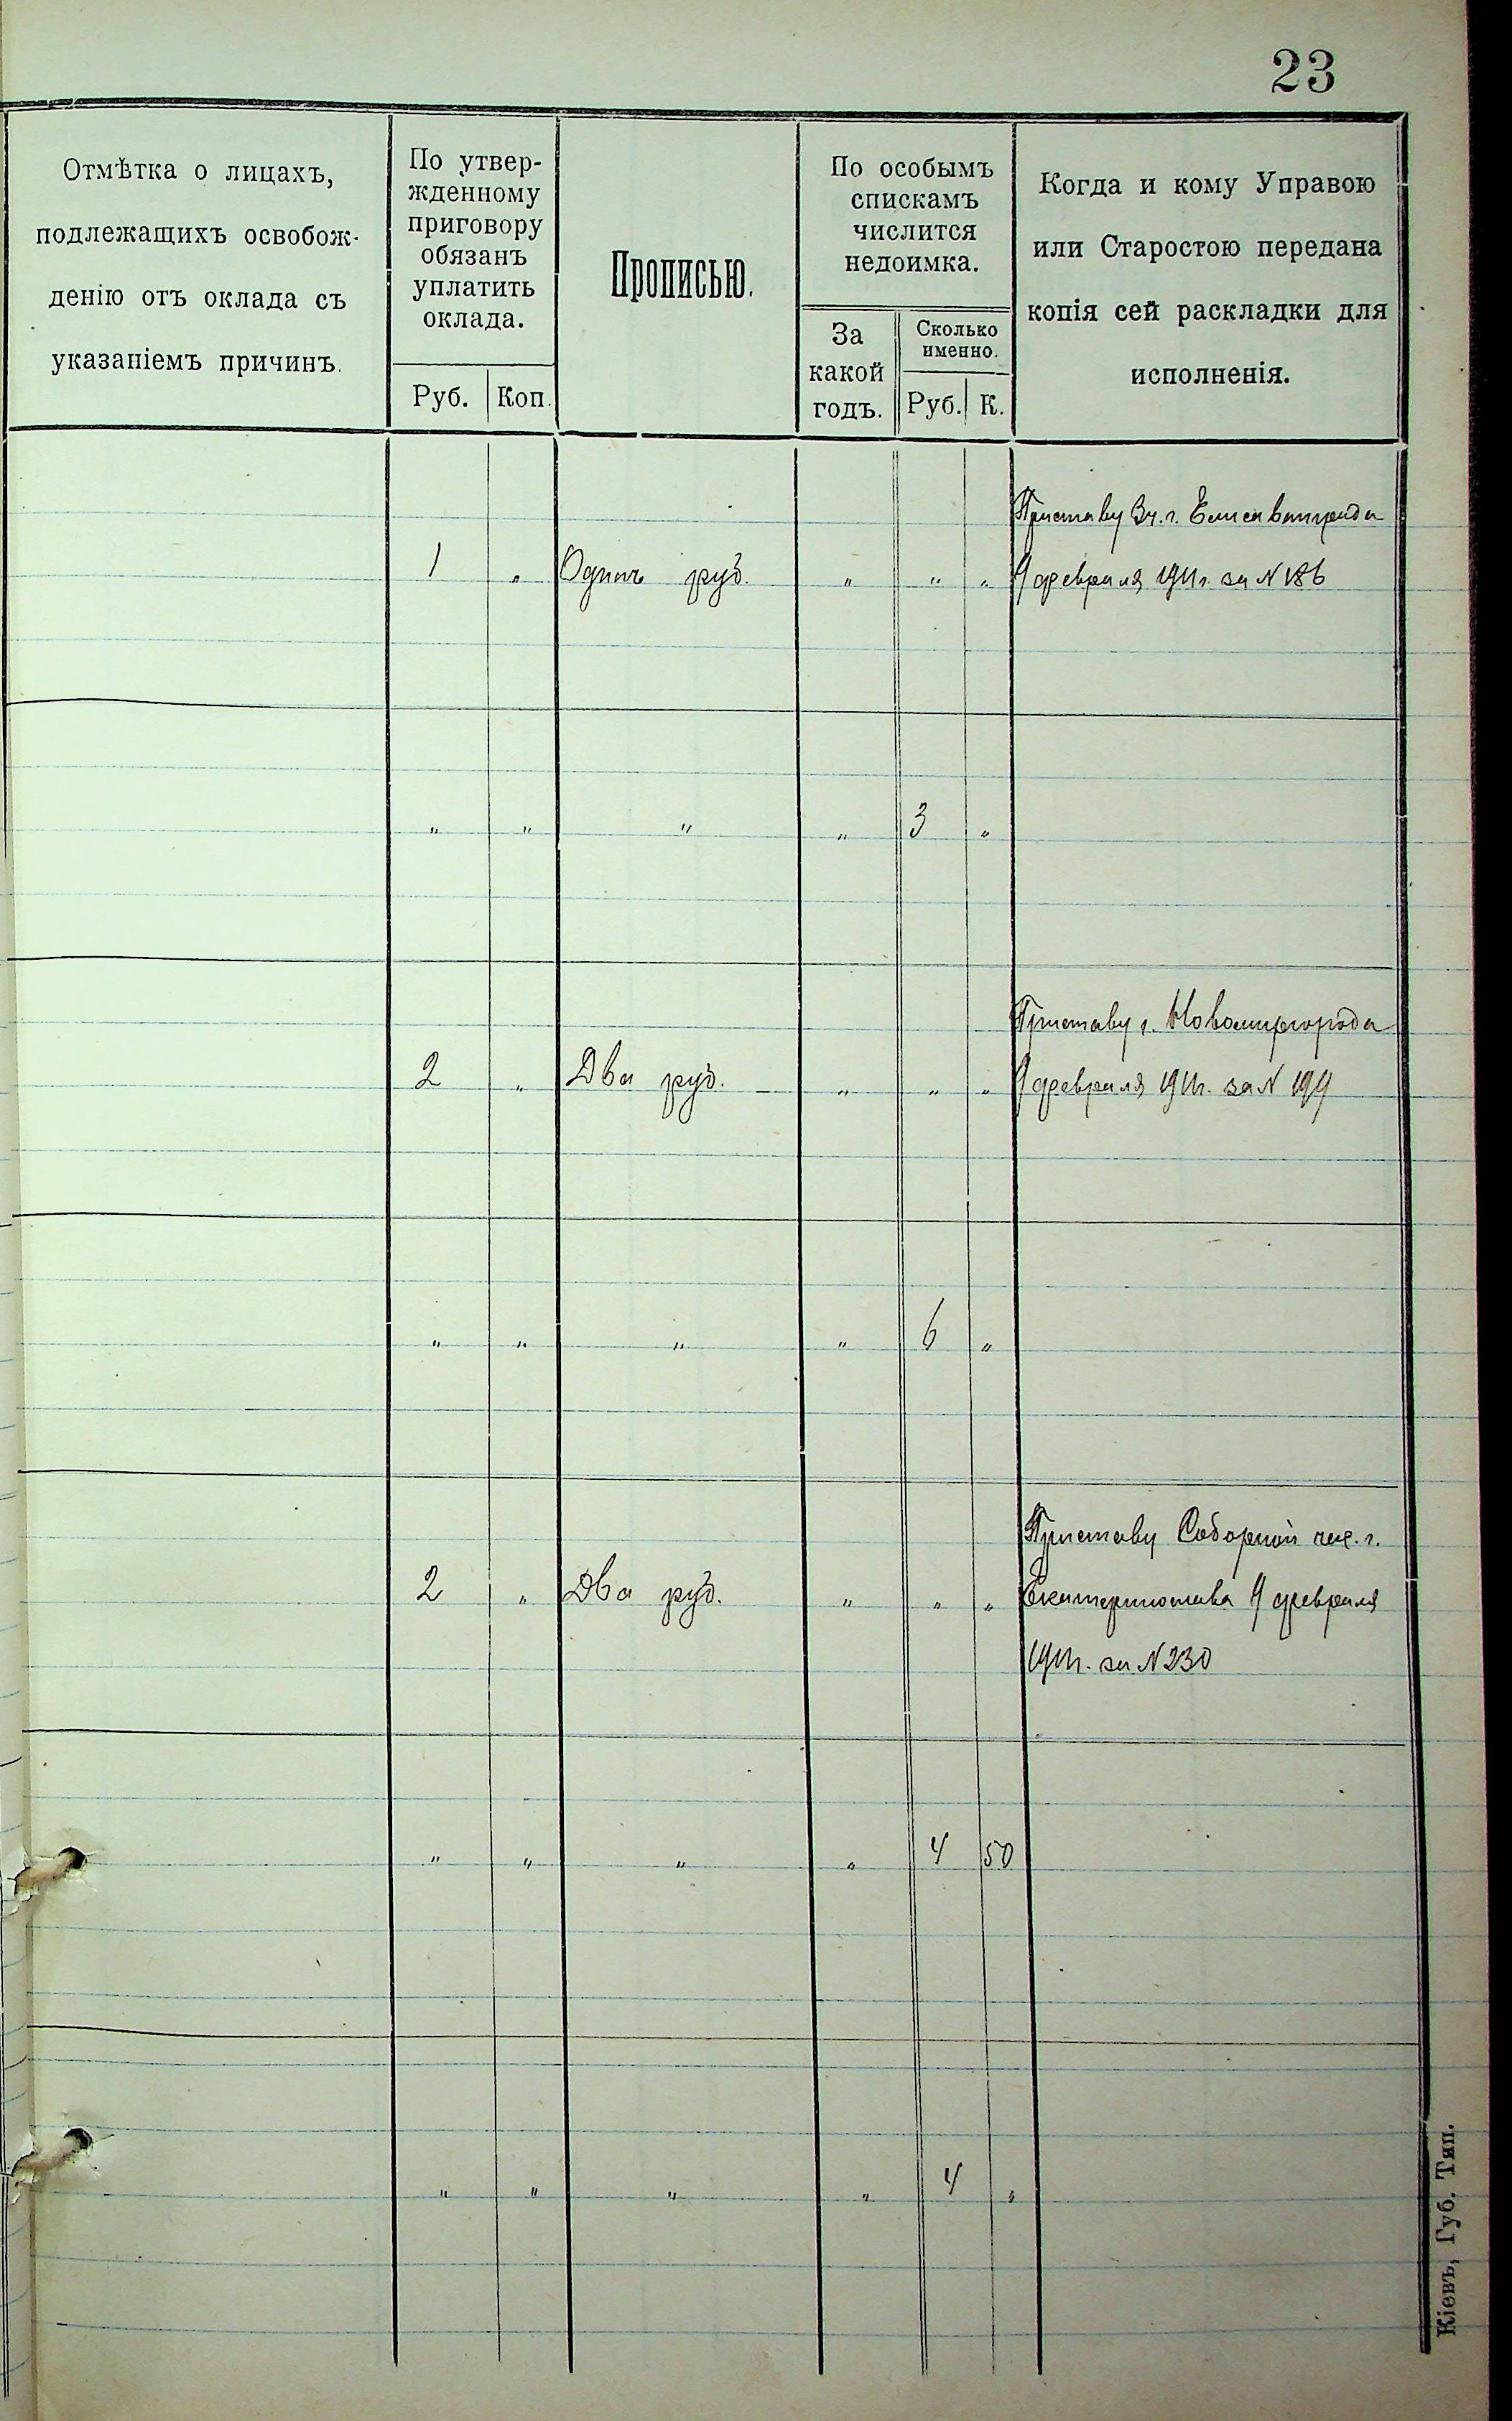 23
Отмѣтка о лицахъ,
подлежащихъ освобож-
денію отъ оклада съ
указаніемъ причинъ.
По утвер-
жденному
приговору
обязанъ
уплатить
оклада.
Руб. Коп.
Прописью.
По особымъ
спискамъ
числится
недоимка.
За
какой
годъ.
Сколько
именно.
Руб. К.
Когда и кому Управою
или Старостою передана
копія сей раскладки для
исполненія.
Приставу 3 ч. г. Елисаветграда
1 " Одинъ руб. " " " 9 февраля 1911 г. за N 186
" " " " 3 "
Приставу г. Новомиргорода
2 " Два руб. " " " 9 февраля 1911 г. за N 199
" " " " 6 "
Приставу Соборной час. г.
2 " Два руб. " " " Екатеринослава 9 февраля
1911 г. за N 230
" " " " 4 50
" " " " 4 "
Кіевъ, Губ. Тип.